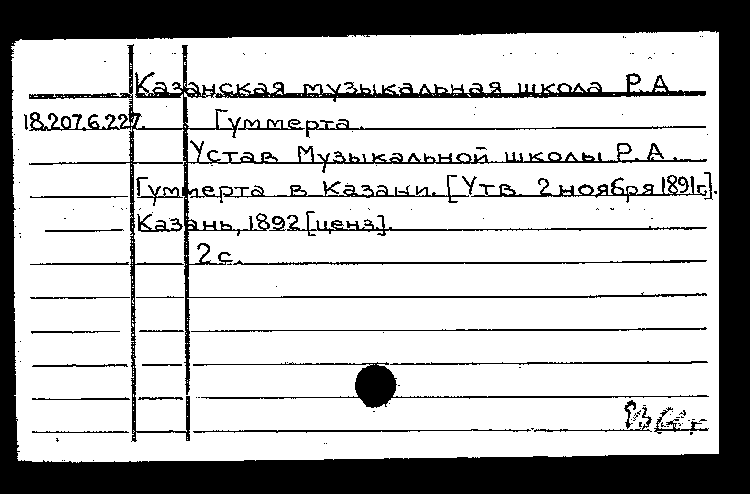 Казанская музыкальная школа Р.А.
18.207.6.227. Гуммерта.
Устав Музыкальной школы Р.А.
Гуммерта в Казани. [Утв. 2 ноября 1891г.].
Казань, 1892 [ценз].
2 с.